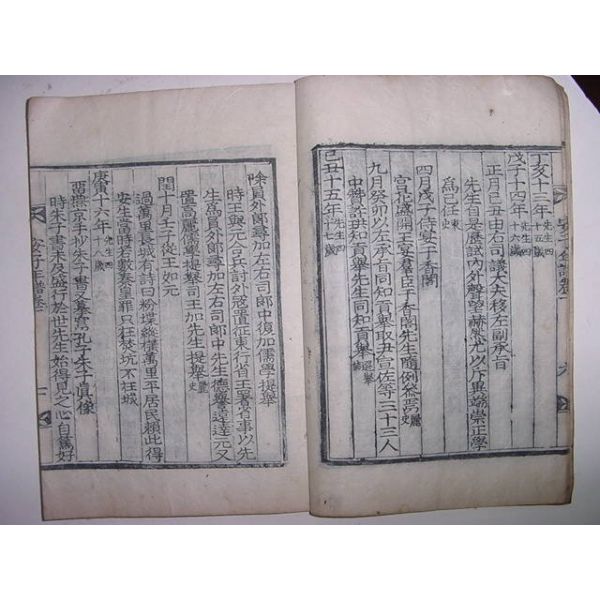 丁亥十三年先生四十五歲
戊子十四年先生四十六歲
正月己丑由右司議大夫移左副承旨
先生自是歷試內外聲望赫然尤以斥異端崇正學
爲己任東史
四月戊子王宴于香閣
宮
九月癸卯以左承旨同知貢舉
中贊許珙知貢舉先生同知貢舉取尹宣佐等三十三人
己丑十五年先生四十七歲
除員外郎尋加左右司郎中復加儒學提舉
時王與元合兵討外寇置征東行省王署省事以先
生爲員外郎尋加左右司郎中先生德譽遠達元又
置高麗儒學提舉司王加先生提舉
閏十月壬子從王如元
過萬里長城有詩曰粉堞縱橫萬里平居民賴此得
安生當時若數秦皇罪只在焚坑不在城
庚寅十六年先生四十八歲
留燕京手抄朱子書又摹寫孔子朱子眞像
時朱子書未及盛行於世先生始得見之心自篤好